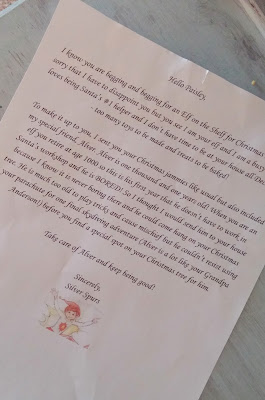 Hello Paisley,
I know you are begging and begging for an Elf on the Shelf for Christmas
sorry that I have to disappoint you but you see I am your elf and I am a busy
loves being Santa's #1 helper and I don't have time to be at your house all Dec
- too many toys to be made and treats to be baked!
To make it up to you, I sent you your Christmas jammies like usual but also included
my special friend, Alver. Alver is one thousand and one years old! When you are an
elf you retire at age 1000 so this is his first year that he doesn't have to work in
Santa's workshop and he is BORED! So I thought I would send him to your house
because I know it is never boring there and he could come hang on your Christmas
tree. He is much too old to play tricks and cause mischief but he couldn't resist using
your parachute for one final skydiving adventure (Alver is a lot like your Grandpa
Anderson!) before you find a special spot on your Christmas tree for him.
Take care of Alver and keep being good!
Sincerely,
Silver Spurs